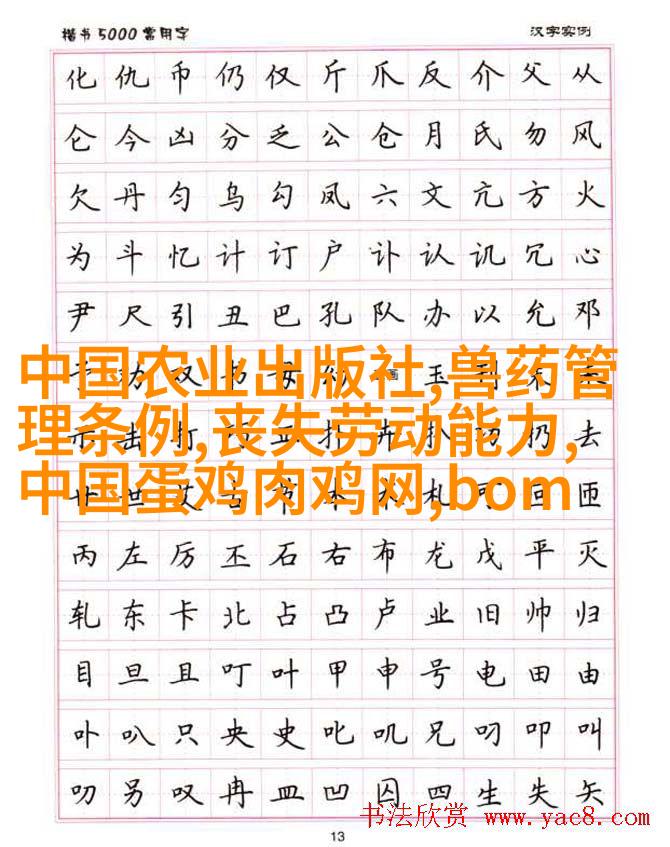 楷书5000常用字 汉字实例
化仇币仍仅斤爪反介父从
仑今凶分乏公仓月氏勿风
欠丹匀乌勾凤六文亢方火
为斗忆计订户讣认讥冗心
尹尺引丑巴孔队办以允邓
中国农业出版社,兽药管
理条例,丧失劳动能力,
中国蛋鸡肉鸡网,bom
丙左厉丕石右布龙戊平灭
轧东卡北占凸卢业旧帅归
目旦且叮叶甲申号电田由
卟叭只央史叱叽兄叼叩叫
叨另叹冉皿凹囚四生失矢
书法欣赏 www.yac8.com
13